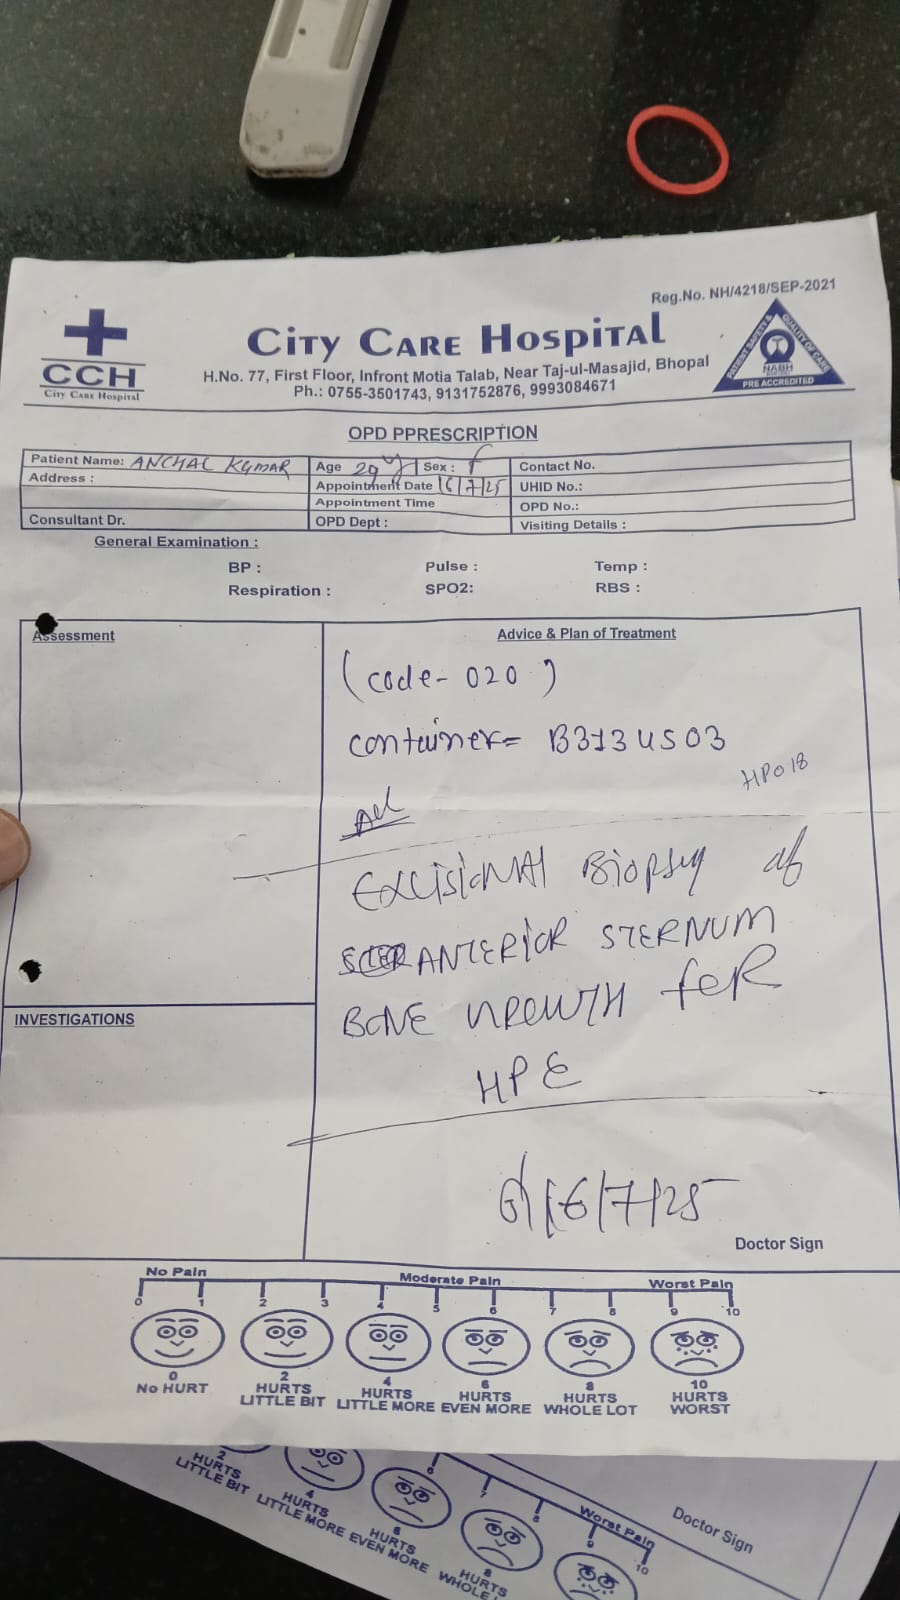 Reg.No. NH/4218/SEP-2021
CCH
City Care Hospital
City Care Hospital
H.No. 77, First Floor, Infront Motia Talab, Near Taj-ul-Masajid, Bhopal
Ph.: 0755-3501743, 9131752876, 9993084671
PATIENT SAFETY & QUALITY OF CARE
NABH
PRE ACCREDITED
OPD PPRESCRIPTION
Patient Name: ANCHAL KUMAR Age 29 y Sex : f Contact No.
Address : Appointment Date 16/7/25 UHID No.:
Appointment Time OPD No.:
Consultant Dr. OPD Dept : Visiting Details :
General Examination :
BP : Pulse : Temp :
Respiration : SPO2: RBS :
Assessment
Advice & Plan of Treatment
(code- 020 )
container= B3134503
HPO18
Adv
EXCISIONAL Biopsy of
ANTERIOR STERNUM
BONE GROWTH FOR
HPE
INVESTIGATIONS
16/7/25
Doctor Sign
No Pain Moderate Pain Worst Pain
0 1 2 3 4 5 6 7 8 9 10
0 2 4 6 8 10
No HURT HURTS LITTLE BIT HURTS LITTLE MORE HURTS EVEN MORE HURTS WHOLE LOT HURTS WORST
2 HURTS LITTLE BIT
4 HURTS LITTLE MORE
6 HURTS EVEN MORE
8 HURTS
Worst Pain
9 10
Doctor Sign